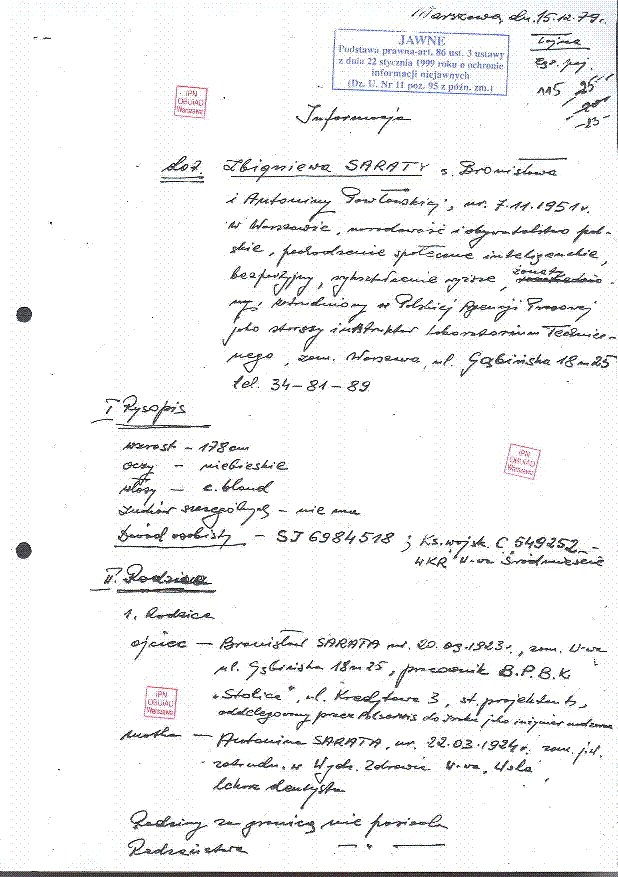 Warszawa, dn. 15.12.79r.
JAWNE
Podstawa prawna-art. 86 ust. 3 ustawy
z dnia 22 stycznia 1999 roku o ochronie
informacji niejawnych
(Dz. U. Nr 11 poz. 95 z późn. zm.)
Tajne
Egz. poj.
115
25
IPN
OBUiAD
Warszawa
Informacja
dot. Zbigniewa SARATY s. Bronisława
i Antoniny Pawłowskiej, ur. 7.11.1951r.
w Warszawie, narodowość i obywatelstwo pol-
skie, pochodzenie społeczne inteligenckie,
bezpartyjny, wykształcenie wyższe, żonaty
zatrudniony w Polskiej Agencji Prasowej
jako starszy instruktor Laboratorium Technicz-
nego, zam. Warszawa, ul. Gąbińska 18 m 25
tel. 34-81-89
I Rysopis
wzrost - 178 cm
oczy - niebieskie
włosy - c. blond
znaków szczególnych - nie ma
Dowód osobisty - SJ 6984518 ; Ks. wojsk. C 649252
WKR W-wa Śródmieście
IPN
OBUiAD
Warszawa
II. Rodzina
1. Rodzice
ojciec - Bronisław SARATA ur. 20.09.1923r., zam. W-wa
ul. Gąbińska 18 m 25, pracownik B.P.B.K.
"Stolica", ul. Kredytowa 3, st. projektant,
oddelegowany przez Polservis do Iraku jako inżynier nadzoru
IPN
OBUiAD
Warszawa
matka - Antonina SARATA, ur. 22.03.1924r. zam. j.w.
zatrudn. w Wydz. Zdrowia W-wa, Wola,
lekarz dentysta
Rodziny za granicą nie posiada
Rodzeństwa — " —